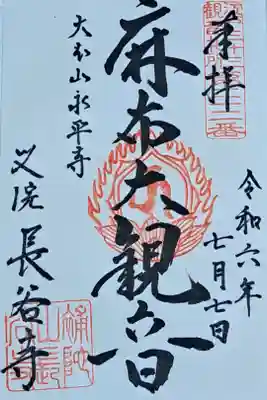 奉拝
令和六年
七月七日
麻布大観音
大本山永平寺
別院 長谷寺
補陀
山長
谷寺